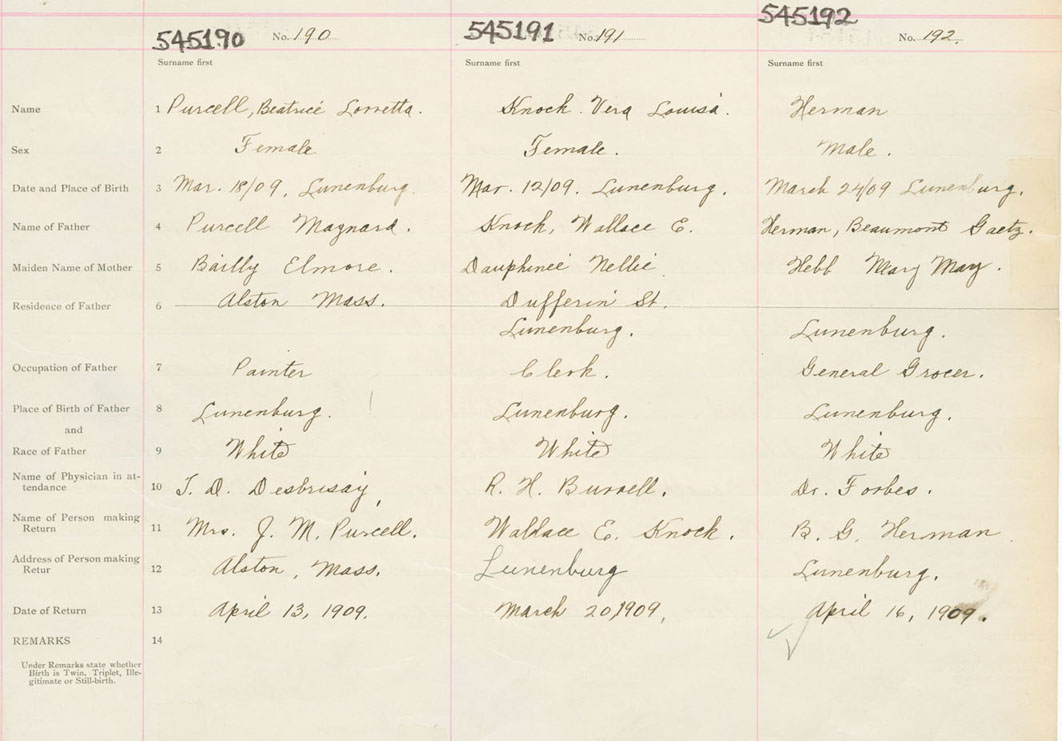 545190 No. 190 545191 No. 191 545192 No. 192.
Surname first Surname first Surname first
Name 1 Purcell, Beatrice Lorretta. Knock. Vera Louisa. Herman
Sex 2 Female Female. Male.
Date and Place of Birth 3 Mar. 18/09, Lunenburg. Mar. 12/09. Lunenburg. March 24/09 Lunenburg.
Name of Father 4 Purcell Maynard. Knock, Wallace E. Herman, Beaumont Gaetz.
Maiden Name of Mother 5 Bailly Elmore. Dauphinee Nellie Hebb Mary May.
Residence of Father 6 Alston Mass. Dufferin St.
Lunenburg. Lunenburg.
Occupation of Father 7 Painter Clerk. General Grocer.
Place of Birth of Father 8 Lunenburg. Lunenburg. Lunenburg.
and
Race of Father 9 White White White
Name of Physician in at-
tendance 10 T. D. Desbrisay R. H. Burrell. Dr. Forbes.
Name of Person making
Return 11 Mrs. J. M. Purcell. Wallace E. Knock. B. G. Herman
Address of Person making
Retur 12 Alston, Mass. Lunenburg Lunenburg.
Date of Return 13 April 13, 1909. March 20, 1909, April 16, 1909.
REMARKS 14
Under Remarks state whether
Birth is Twin, Triplet, Ille-
gitimate or Still-birth.